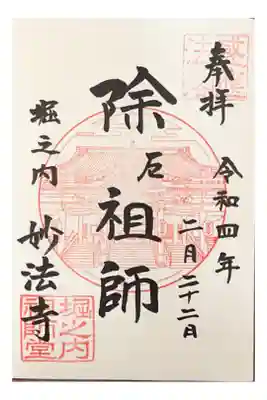 奉拝
令和四年
二月二十二日
除厄祖師
堀之内
妙法寺
堀之内
祖師堂